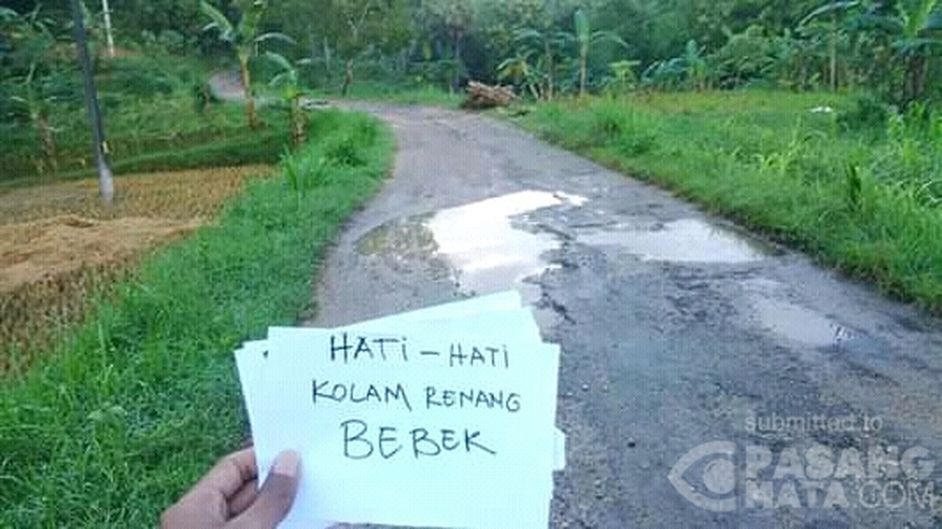 HATi - HATi
KOLAM RENANG
BEBEK
submitted to
PASANG
MATA.COM